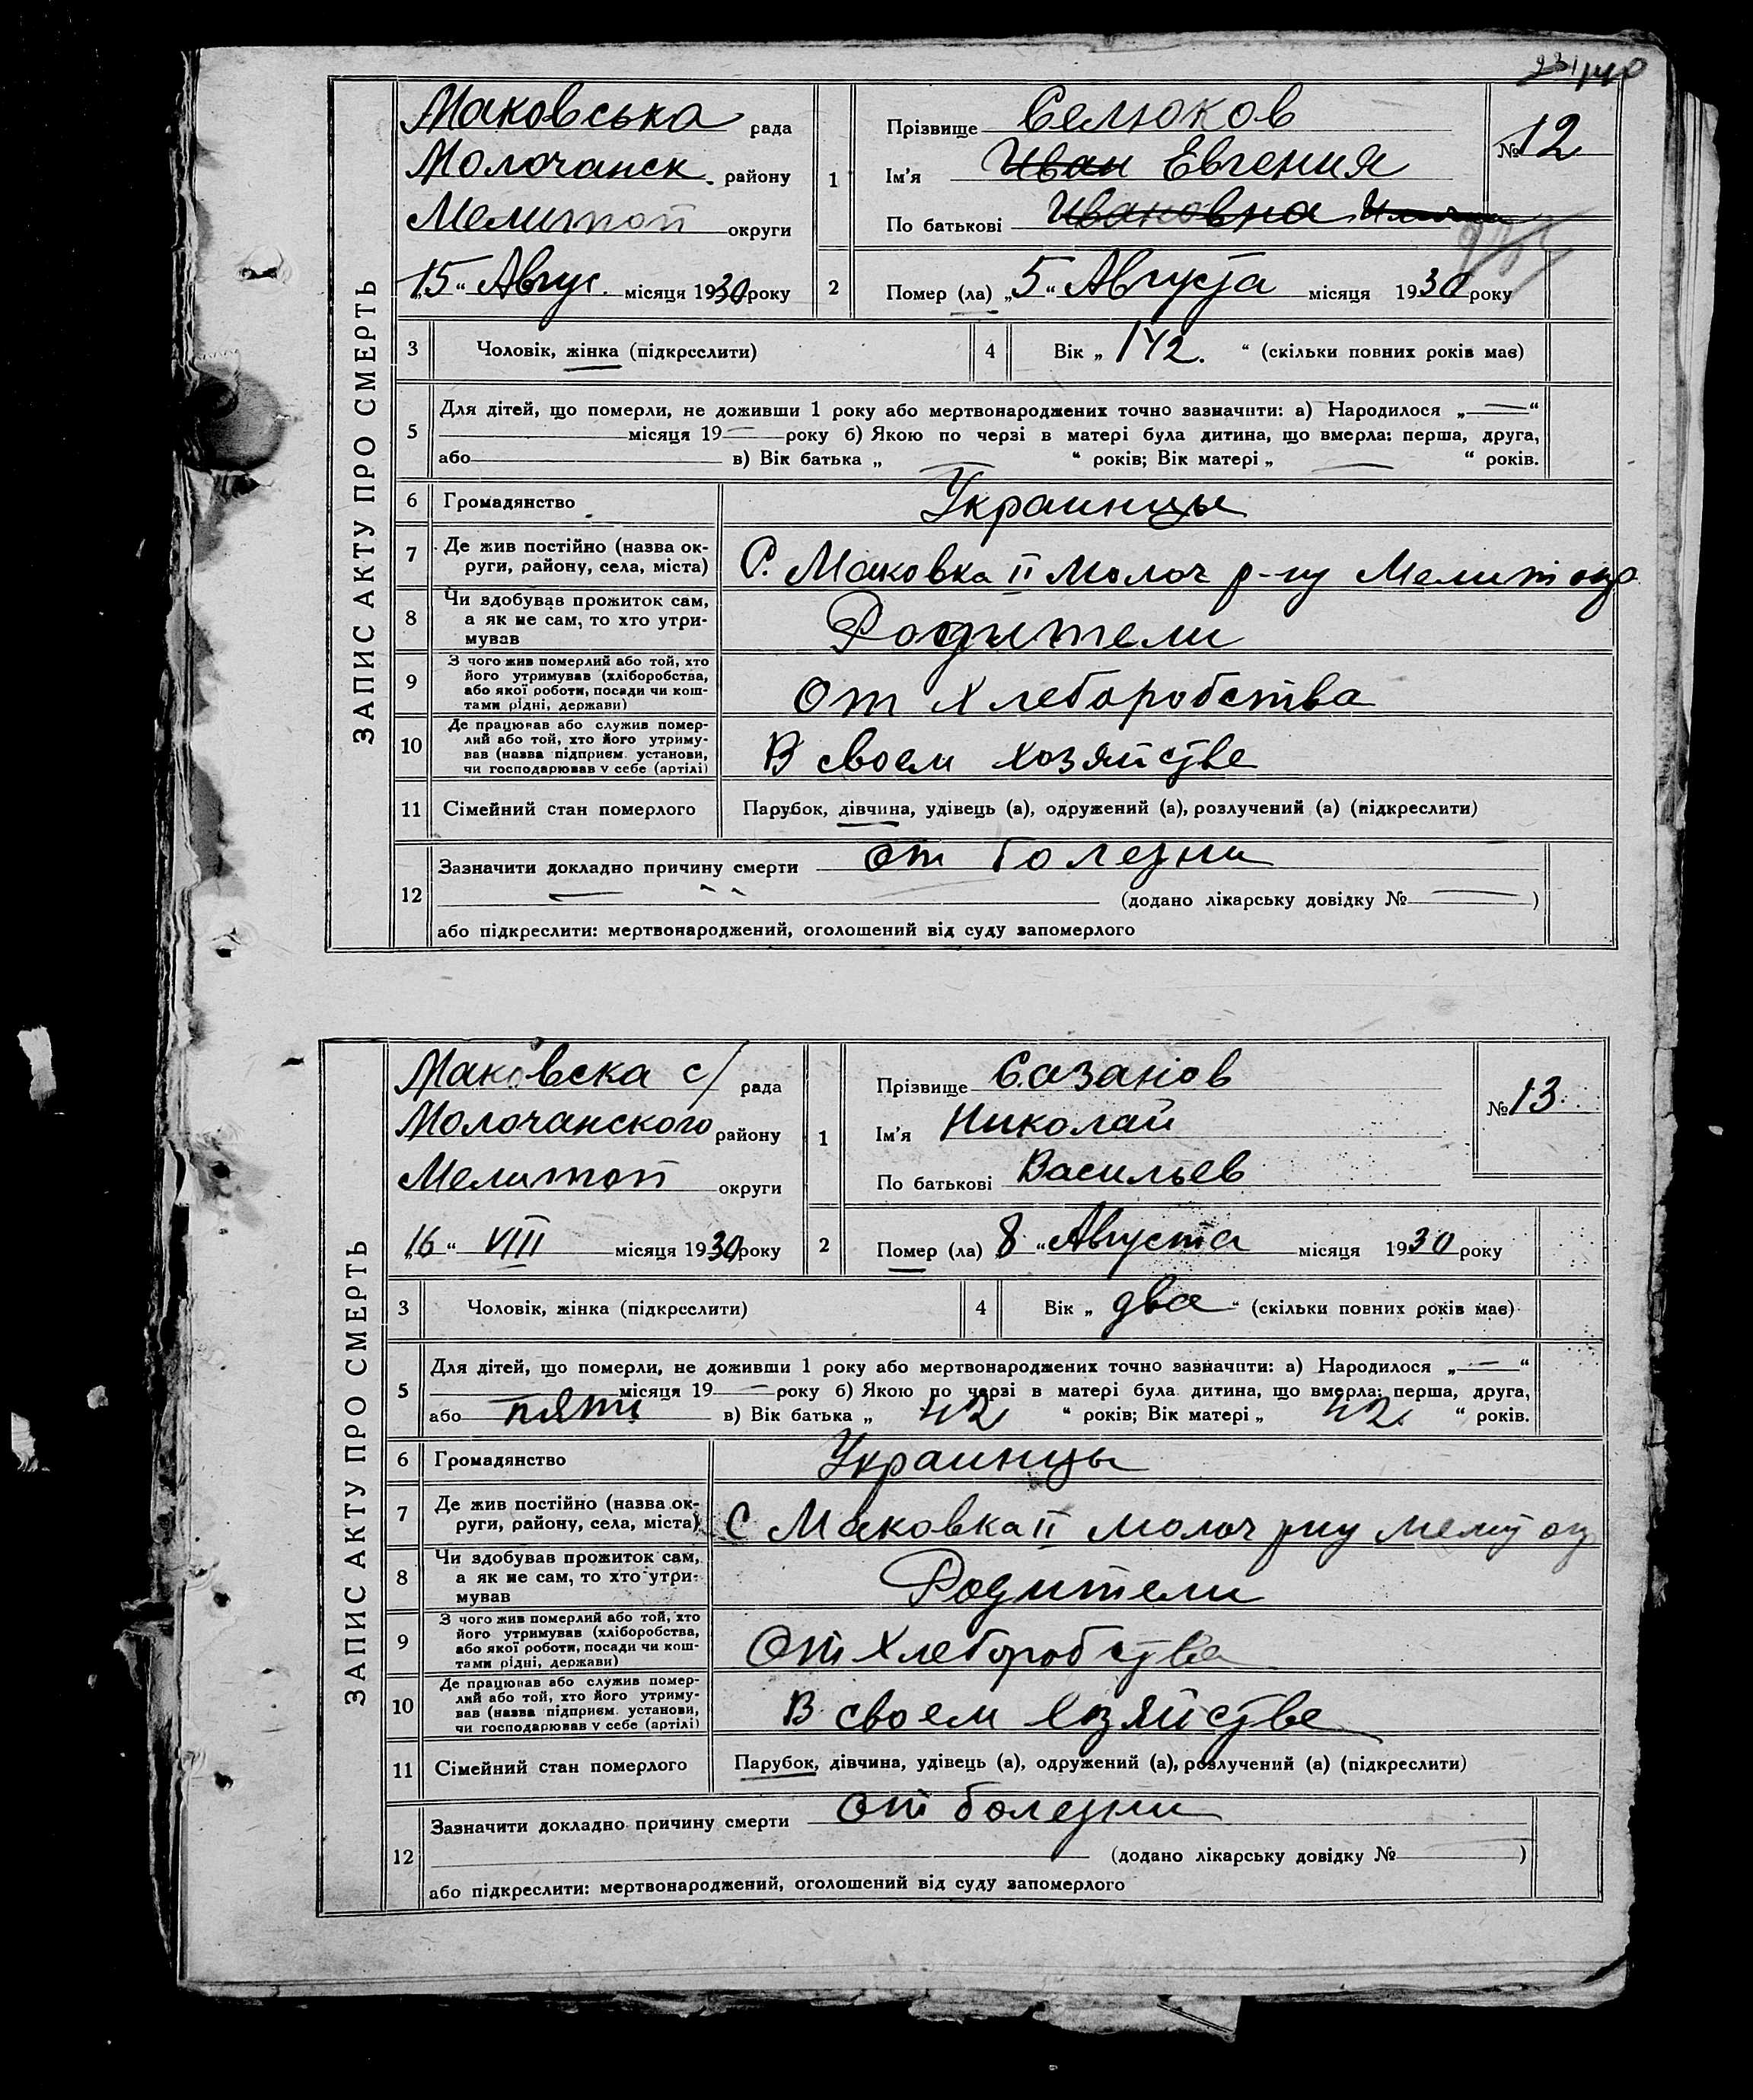 140
ЗАПИС АКТУ ПРО СМЕРТЬ
Маковська рада
Молочанск. району
Мелитоп округи
„15“ Авгус. місяця 1930 року
1
Прізвище Селюков
Ім'я Иван Евгения
По батькові Ивановна
№ 12
2
Помер (ла) „5“ Августа місяця 1930 року
3
Чоловік, жінка (підкреслити)
4
Вік „ 1 1/2. “ (скільки повних років має)
5
Для дітей, що померли, не доживши 1 року або мертвонароджених точно зазначити: а) Народилося „—“
місяця 19— року б) Якою по черзі в матері була дитина, що вмерла: перша, друга,
або в) Вік батька „ — “ років; Вік матері „ — “ років.
6
Громадянство
Украинцы
7
Де жив постійно (назва ок-
руги, району, села, міста)
С. Маковка II Молоч р-ну Мелит окр
8
Чи здобував прожиток сам,
а як не сам, то хто утри-
мував
Родители
9
З чого жив померлий або той, хто
його утримував (хліборобства,
або якої роботи, посади чи кош-
тами рідні, держави)
От Хлеборобства
10
Де працював або служив помер-
лий або той, хто його утриму-
вав (назва підприєм. установи,
чи господарював у себе (артілі)
В своем хозяйстве
11
Сімейний стан померлого
Парубок, дівчина, удівець (а), одружений (а), розлучений (а) (підкреслити)
12
Зазначити докладно причину смерти от болезни
— (додано лікарську довідку № —)
або підкреслити: мертвонароджений, оголошений від суду запомерлого
ЗАПИС АКТУ ПРО СМЕРТЬ
Маковска с/ рада
Молочанского району
Мелитоп округи
„16“ VIII місяця 1930 року
1
Прізвище Сазанов
Ім'я Николай
По батькові Васильев
№ 13.
2
Помер (ла) 8 “ Августа місяця 1930 року
3
Чоловік, жінка (підкреслити)
4
Вік „ два “ (скільки повних років має)
5
Для дітей, що померли, не доживши 1 року або мертвонароджених точно зазначити: а) Народилося „—“
місяця 19— року б) Якою по черзі в матері була дитина, що вмерла: перша, друга,
або в) Вік батька „ 42 “ років; Вік матері „ 42 “ років.
6
Громадянство
Украинцы
7
Де жив постійно (назва ок-
руги, району, села, міста)
С Маковка II Молоч рну Мелит ок
8
Чи здобував прожиток сам,
а як не сам, то хто утри-
мував
Родители
9
З чого жив померлий або той, хто
його утримував (хліборобства,
або якої роботи, посади чи кош-
тами рідні, держави)
От Хлеборобства
10
Де працював або служив помер-
лий або той, хто його утриму-
вав (назва підприєм. установи,
чи господарював у себе (артілі)
В своем хозяйстве
11
Сімейний стан померлого
Парубок, дівчина, удівець (а), одружений (а), розлучений (а) (підкреслити)
12
Зазначити докладно причину смерти от болезни
(додано лікарську довідку № )
або підкреслити: мертвонароджений, оголошений від суду запомерлого